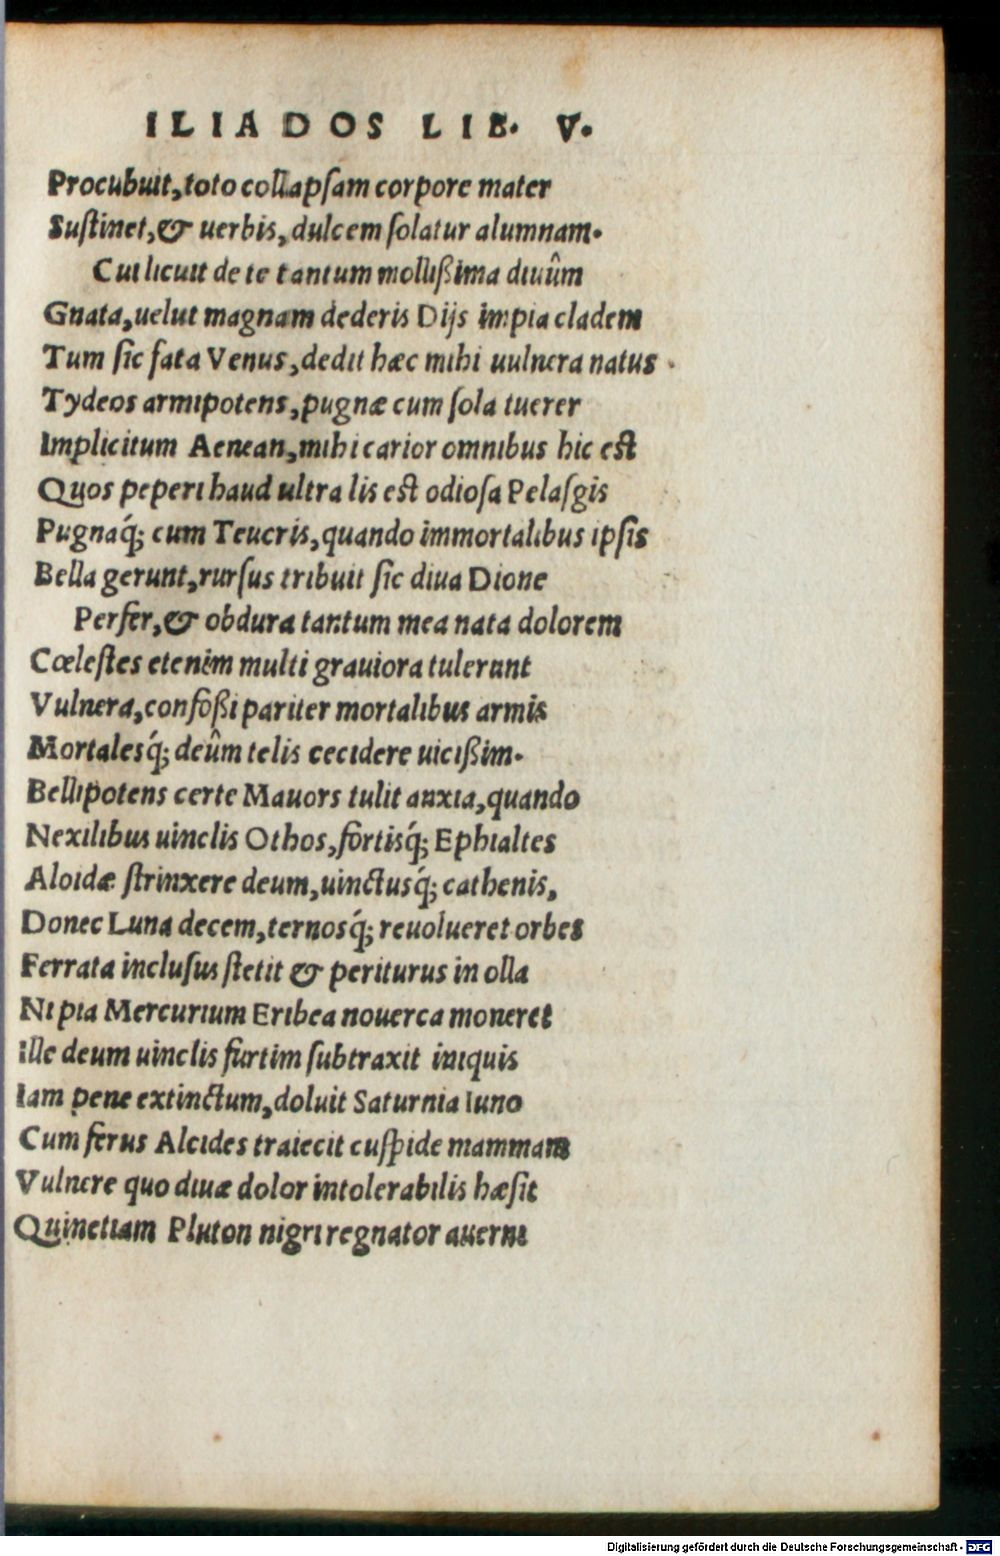 ILIADOS LIB. V.
Procubuit, toto collapsam corpore mater
Sustinet, & uerbis, dulcem solatur alumnam.
Cui licuit de te tantum mollißima diuûm
Gnata, uelut magnam dederis Dijs impia cladem
Tum sic fata Venus, dedit hæc mihi uulnera natus.
Tydeos armipotens, pugnæ cum sola tuerer
Implicitum Aenean, mihi carior omnibus hic est
Quos peperi haud ultra lis est odiosa Pelasgis
Pugnaq́; cum Teucris, quando immortalibus ipsis
Bella gerunt, rursus tribuit sic diua Dione
Perfer, & obdura tantum mea nata dolorem
Cœlestes etenim multi grauiora tulerunt
Vulnera, confoßi pariter mortalibus armis
Mortalesq́; deûm telis cecidere uicißim.
Bellipotens certe Mauors tulit anxia, quando
Nexilibus uinclis Othos, fortisq́; Ephialtes
Aloidæ strinxere deum, uinctusq́; cathenis,
Donec Luna decem, ternosq́; reuolueret orbes
Ferrata inclusus stetit & periturus in olla
Ni pia Mercurium Eribea nouerca moneret
Ille deum uinclis furtim subtraxit iniquis
Iam pene extinctum, doluit Saturnia Iuno
Cum ferus Alcides traiecit cuspide mammam
Vulnere quo diuæ dolor intolerabilis hæsit
Quinetiam Pluton nigri regnator auerni
Digitalisierung gefördert durch die Deutsche Forschungsgemeinschaft - DFG